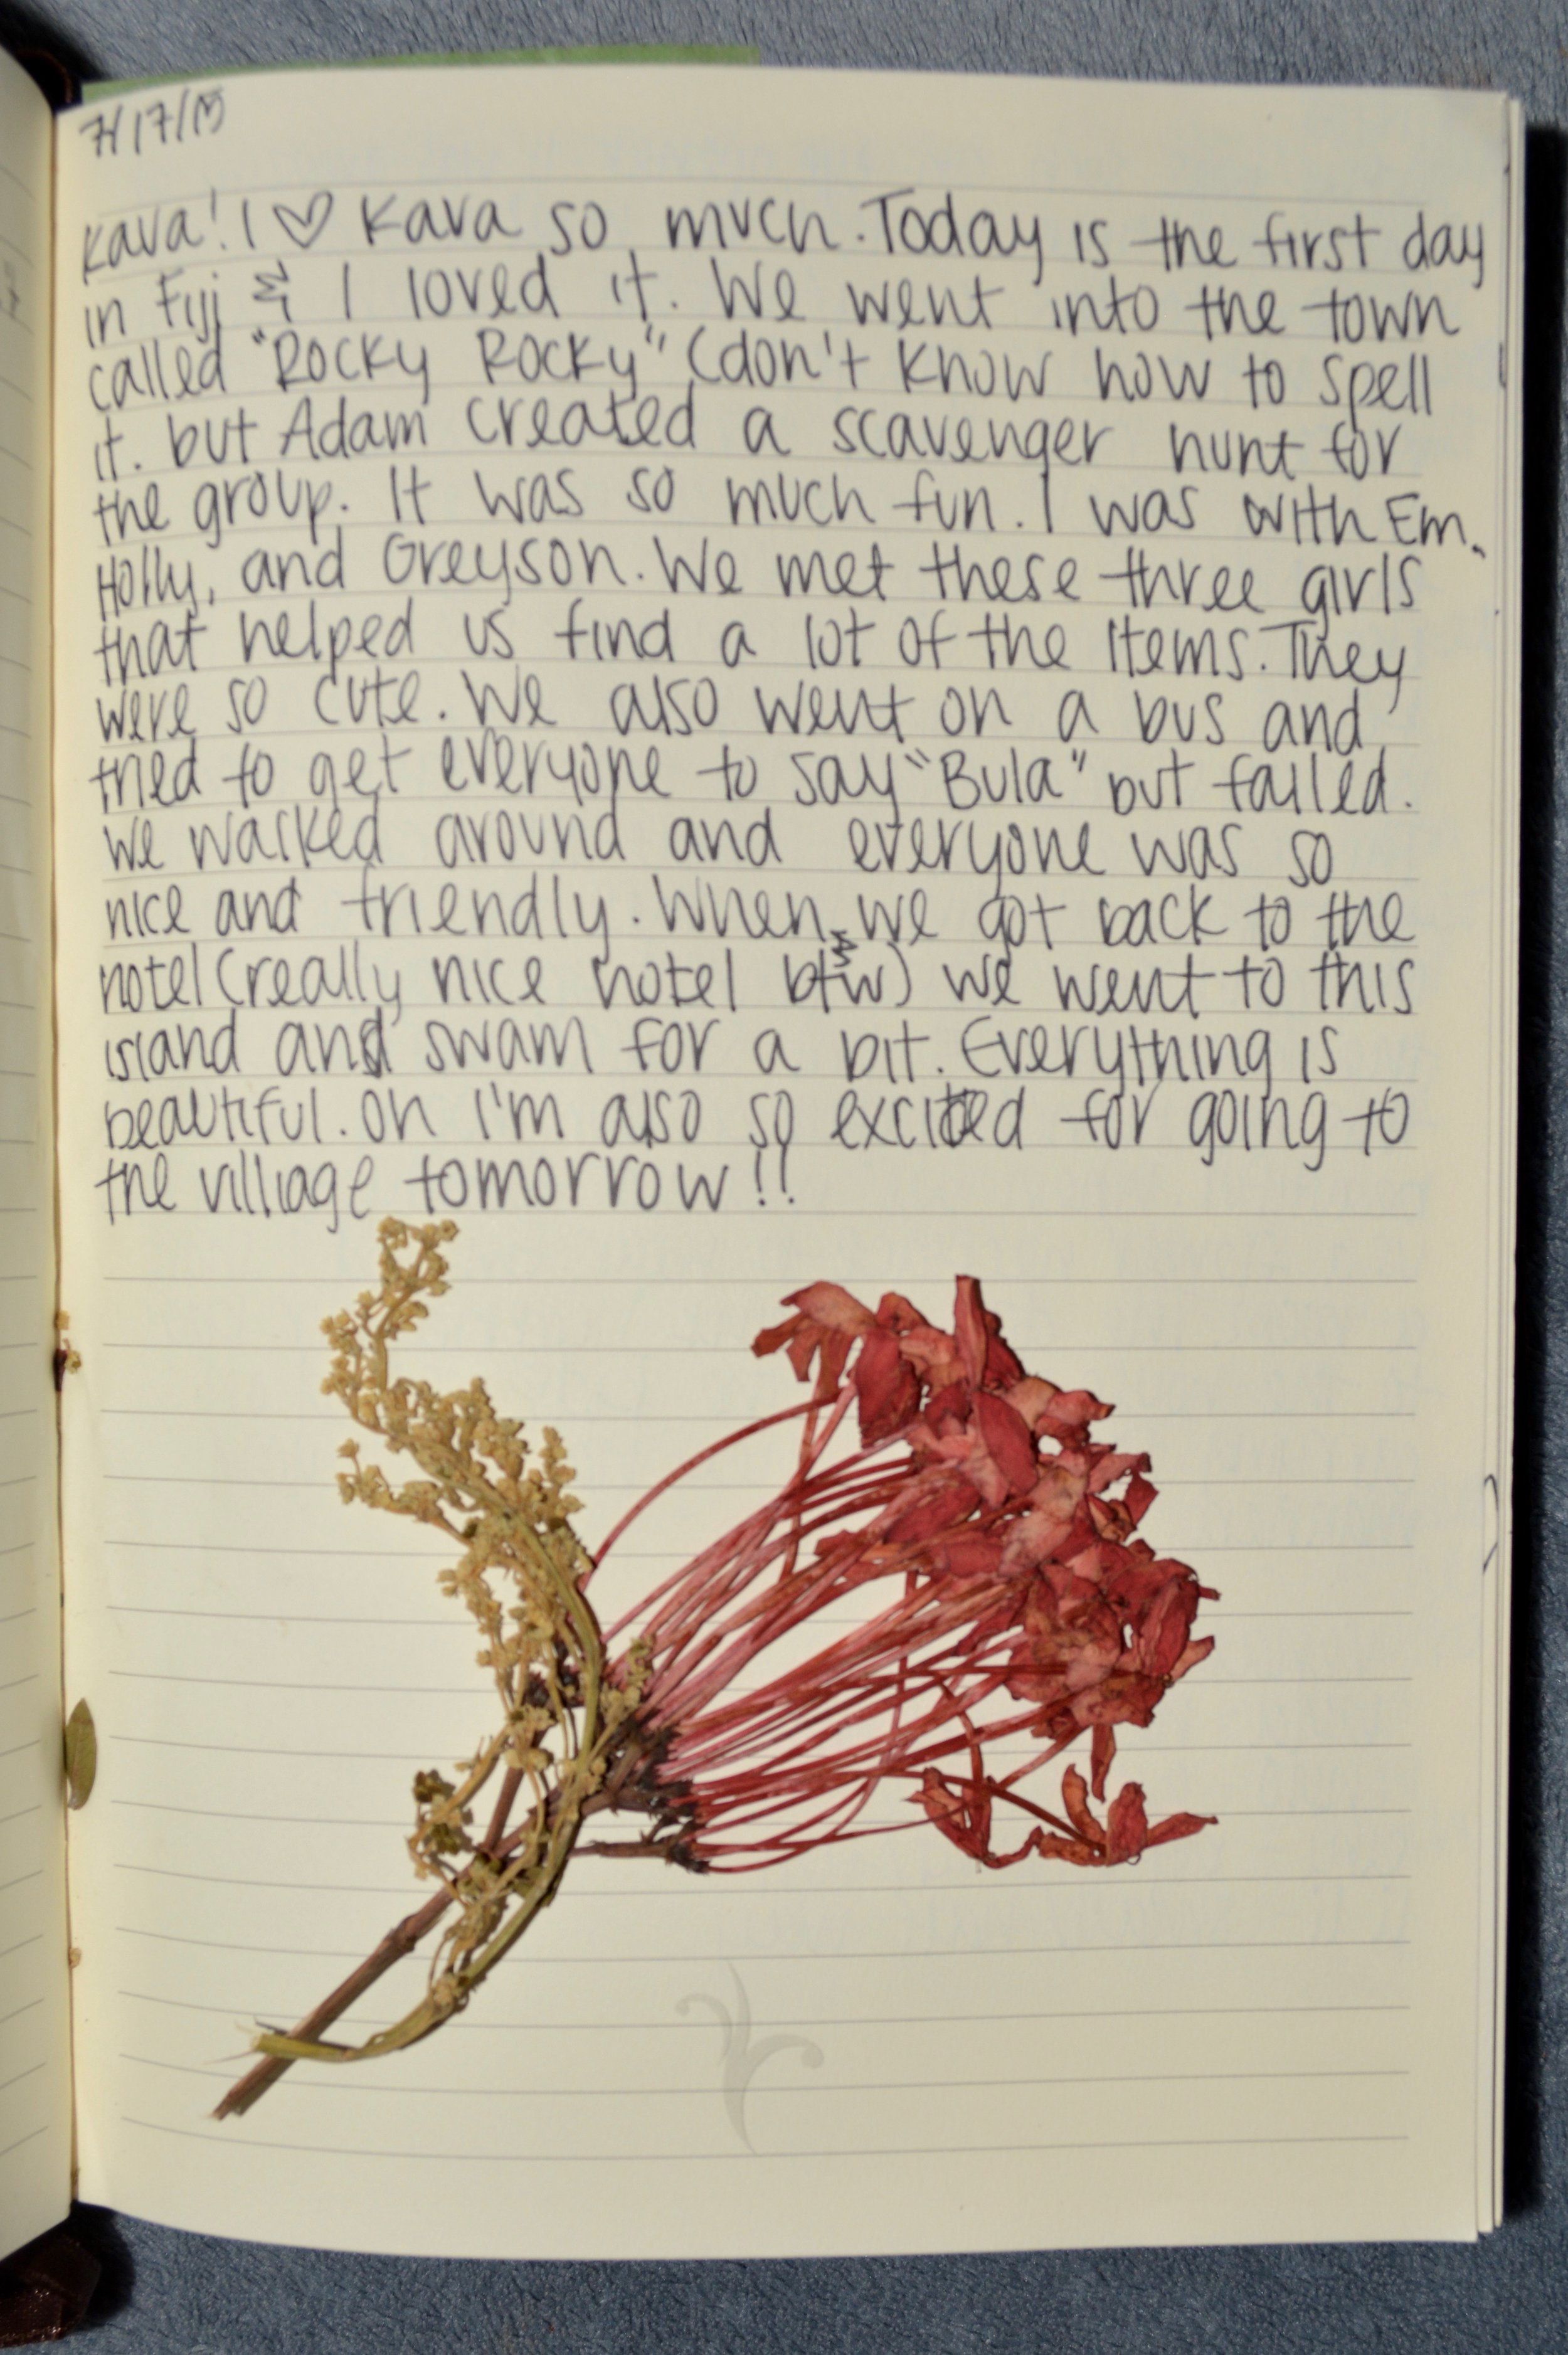 7/17/15
Kava! I ♡ Kava so much. Today is the first day
in Fiji & I loved it. We went into the town
called "Rocky Rocky" (don't know how to spell
it. but Adam created a scavenger hunt for
the group. It was so much fun. I was with Em,
Holly, and Greyson. We met these three girls
that helped us find a lot of the items. They
were so cute. We also went on a bus and
tried to get everyone to say "Bula" but failed.
We walked around and everyone was so
nice and friendly. When we got back to the
hotel (really nice hotel btw) we went to this
island and swam for a bit. Everything is
beautiful. Oh I'm also so excited for going to
the village tomorrow!!